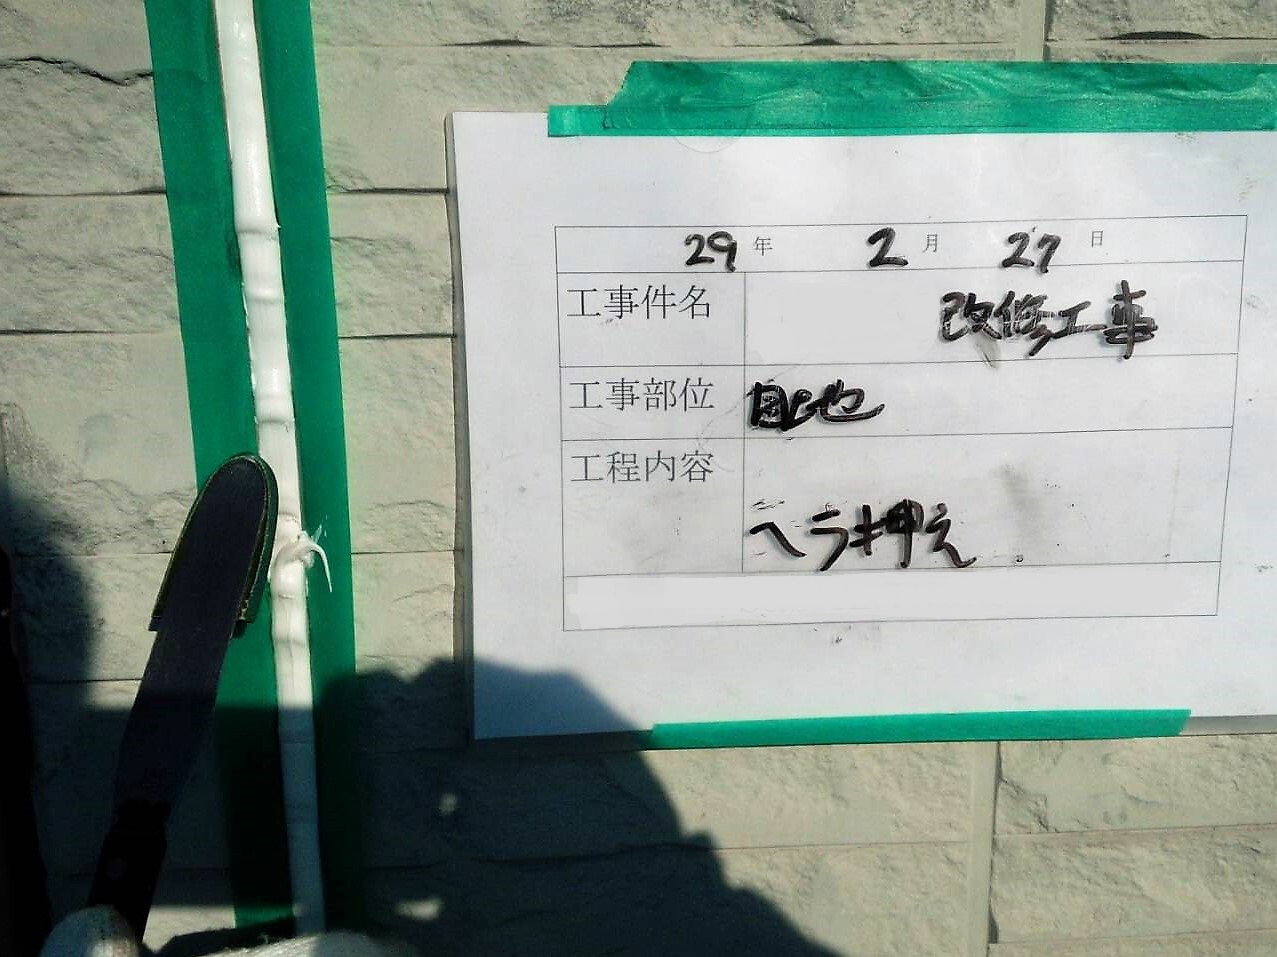 29年 2月 27日
工事件名 改修工事
工事部位 目地
工程内容
ヘラ押え